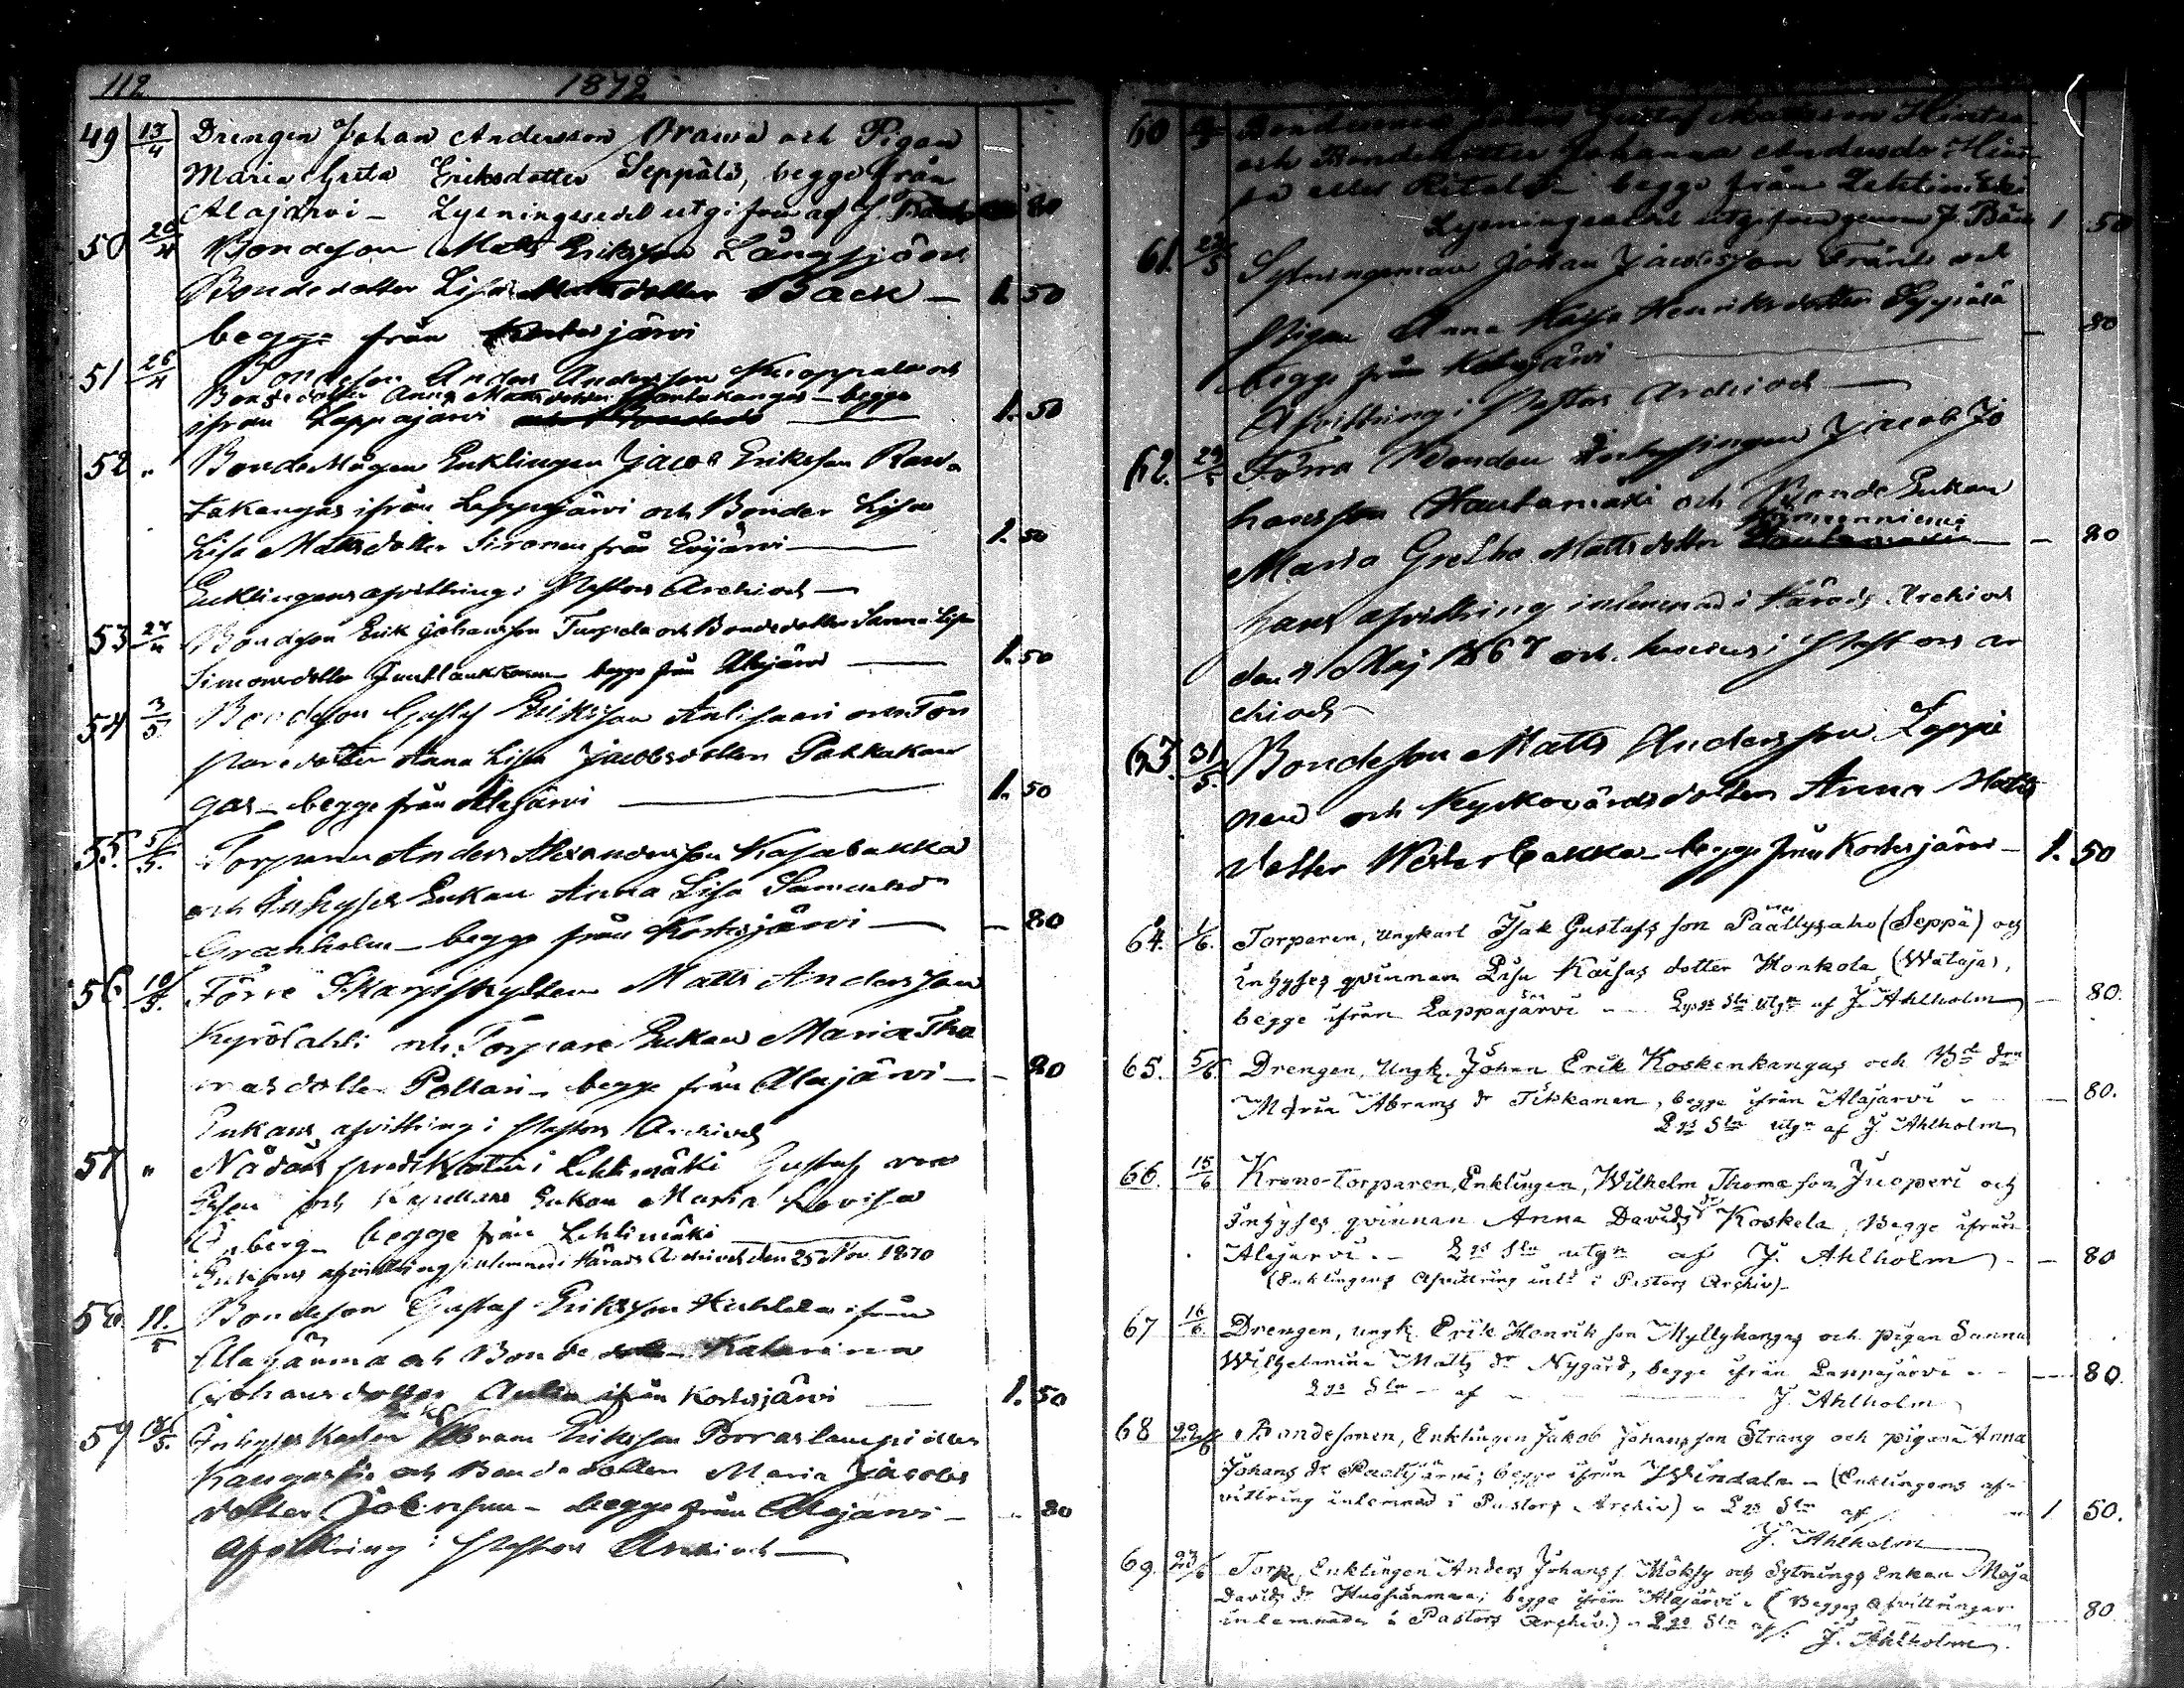 112 1872
49 13/4 Drengen Johan Andersson Orawa och Pigan
Maria Greta Eriksdotter Seppälä, begge från
Alajärvi - Lysningssedel utgifven af J. 80
50 20/4 Bondeson Matts Eriksson Långsjö och
Bondedotter Lisa Mattsdotter Back - 1. 50
begge från Kortesjärvi
51 26/4 Bondeson Anders Andersson och
Bondedotter Anna Mattsdotter - begge
ifrån Lappajärvi 1. 50
52 " Bonde Mågen Enklingen Jacob Eriksson Rau
takangas ifrån Lappajärvi och Bonde
Lisa Mattsdotter Sironen från Evijärvi - 1. 50
Enklingens afvittring i Pastors Archivet -
53 27/4 Bondeson Erik Johansson Turpela och Bondedotter Sanna Lisa
Simonsdotter begge från Alajärvi - 1. 50
54 3/5 Bondeson Gustaf Eriksson Anlisaari och Tor
paredotter Anna Lisa Jacobsdotter Pahkakan
gas - begge från Alajärvi 1. 50
55. 5/5. Torparen Anders Alexandersson Kasabakka
och Inhyses Enkan Anna Lisa Samuelsdr
Granholm - begge från Kortesjärvi - - 80
56. 10/5. Förre Skarpskytten Matts Andersson
Kyrölahti och Torpare Enkan Maria Tho
masdotter Pollari - begge från Alajärvi - - 80
Enkans afvittring i Pastors Archivet
57 " Nådårs predikanten i Lehtimäki Gustaf von
Essen och Kapellans Enkan Maria Lovisa
berg - begge från Lehtimäki
Enkans afvittring inlemnad i Härads Archivet den 25 Nov 1870
58 11./5 Bondeson Gustaf Eriksson Huhtala ifrån
Alajärvi och Bonde dotter Katarina
Johansdotter ifrån Kortesjärvi 1. 50
59 /5. Inhyses Karlen Abram Eriksson Porraslampi eller
Kangas och Bondedotter Maria Jacobs
dotter - begge från Alajärvi - - 80
Afvittring i Pastors Archivet -
60 Bondesonen Johan Gustaf Mattsson Hintsa
och Bondedotter Johanna Andersdr
eller Ritala - begge från Lehtimäki
Lysningssedel utgifven genom J. 1 50
61. 25/5 Sytningsman Johan Jacobsson Fränti och
Pigan Anna Kaisa Henriksdotter Syrjälä - 80
begge från Kortesjärvi
Afvittring i Pastors Archivet -
62. 29/5 Förra Bonden Jacob Jo
hansson Hautamäki och Bonde Enkan
Maria Gretha Mattsdotter - - 80
hans afvittring inlemnad i Härads Archivet
den Maj 1867 och hennes i Pastors ar
chivet
63. 31/5. Bondeson Matts Andersson Leppi
nen och Kyrkovärdsdotter Anna Matts
dotter Westerbakka - begge från Kortesjärvi - 1. 50
64. 1/6. Torparen, ungkarl Isak Gustafs son Päällysaho (Seppä) och
inhyses qvinnan Lisa Kaisas dotter Honkola (Wataja),
begge ifrån Lappajärvi - Lysgs Sln utgn af J. Ahlholm - 80.
65. 5/6. Drengen, Ungk. Johan Erik Koskenkangas och Bde drn
Maria Abrams dr Tikkanen, begge ifrån Alajärvi - - 80.
Lgs Sln utgn af J. Ahlholm
66. 15/6 Krono-torparen, Enklingen, Wilhelm Thomasson Juoperi och
inhyses qvinnan Anna Davids dr Koskela, Begge ifrån
Alajärvi. - Lgs Sln utgn af J. Ahlholm - - 80
(Enklingens Afvittring inld i Pastors Archiv) -
67 16/6 Drengen, ungk. Erik Henrik son Myllykangas och pigan Sanna
Wilhelmina Matts dr Nygård, begge ifrån Lappajärvi - - 80.
Lgs Sln - af J. Ahlholm
68 22/6 Bondesonen, Enklingen Jakob Johansson Strang och pigan Anna
Johans dr begge ifrån Windala - (Enklingens af-
vittring inlemnad i Pastors Archiv) - Lgs Sln af 1 50.
J. Ahlholm
69 23/6 Torp. Enklingen Anders Johans s. Möksy och Sytnings enkan Maja
Davids dr begge ifrån Alajärvi - (Begges afvittringar
inlemnade i Pastors Archiv.) - Lgs Sln af: J. Ahlholm. 80